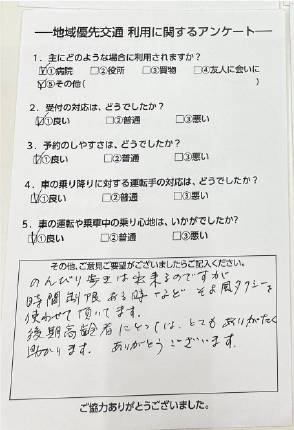 ―地域優先交通 利用に関するアンケート―
1．主にどのような場合に利用されますか？
☑①病院 □②役所 □③買物 □④友人に会いに
☑⑤その他（ ）
2．受付の対応は、どうでしたか？
☑①良い □②普通 □③悪い
3．予約のしやすさは、どうでしたか？
☑①良い □②普通 □③悪い
4．車の乗り降りに対する運転手の対応は、どうでしたか？
☑①良い □②普通 □③悪い
5．車の運転や乗車中の乗り心地は、いかがでしたか？
☑①良い □②普通 □③悪い
その他、ご意見ご要望がございましたらご記入ください。
のんびり歩きは出来るのですが
時間制限ある時など そよ風タクシーを
使わせて頂いてます。
後期高齢者にとっては、とてもありがたく
助かります。 ありがとうございます。
ご協力ありがとうございました。